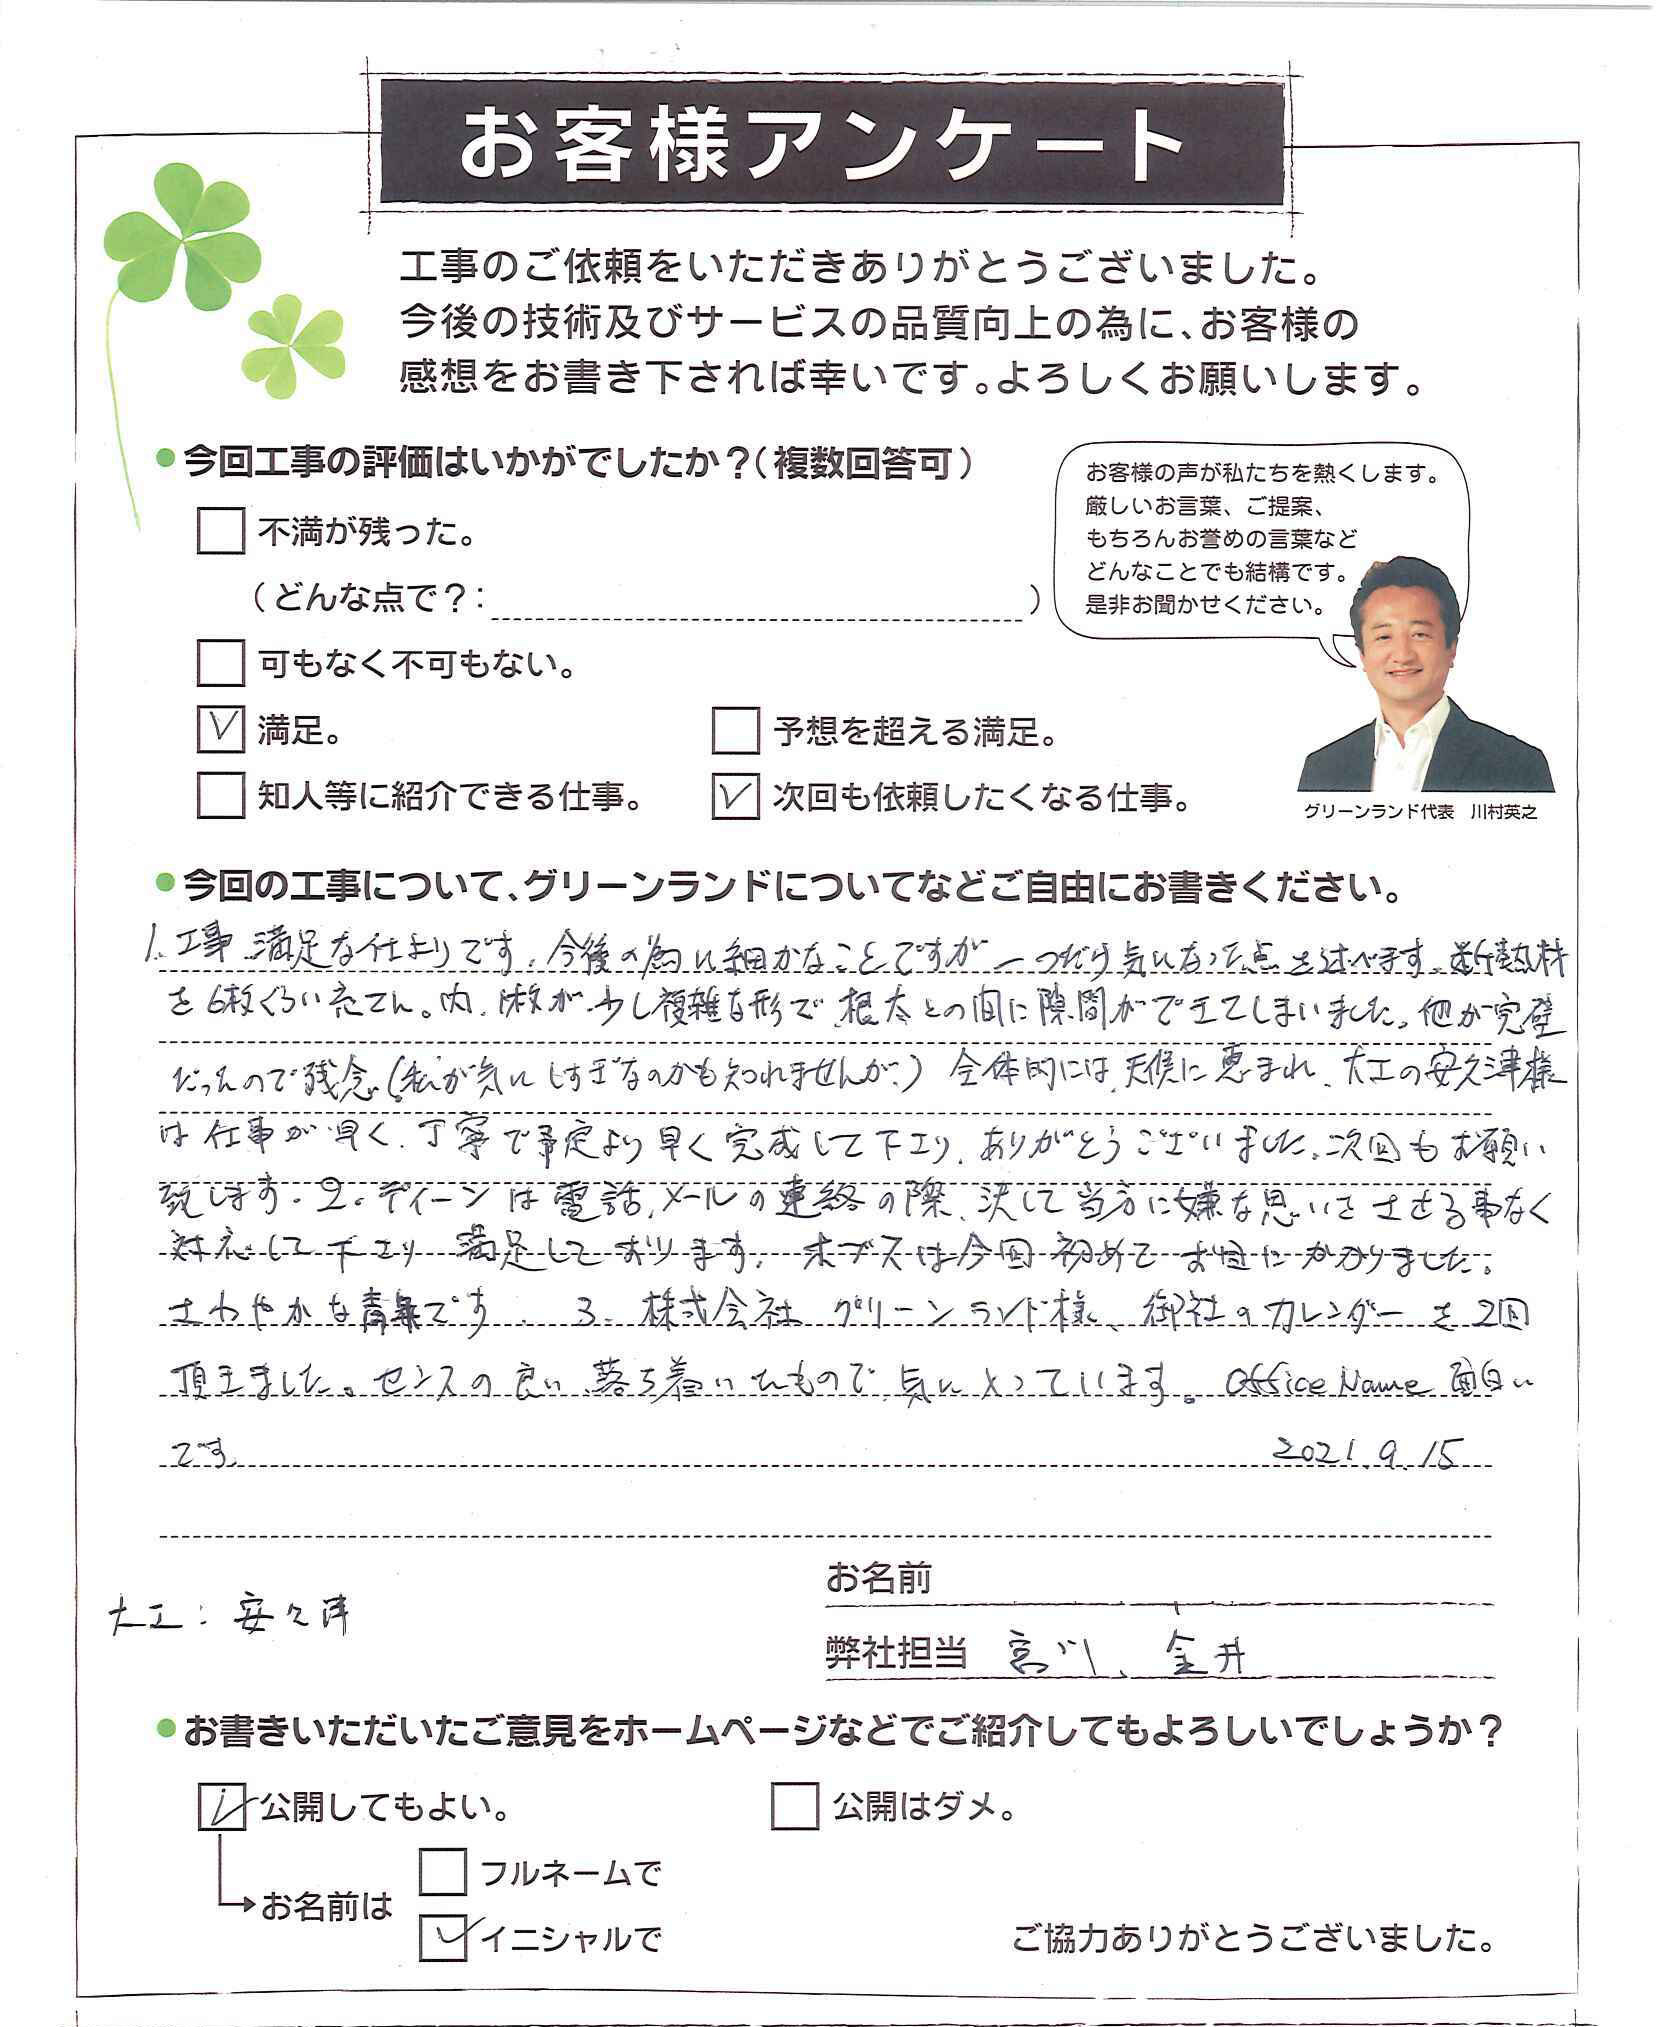 お客様アンケート
工事のご依頼をいただきありがとうございました。
今後の技術及びサービスの品質向上の為に、お客様の
感想をお書き下されば幸いです。よろしくお願いします。
今回工事の評価はいかがでしたか?(複数回答可)
不満が残った。
(どんな点で?: )
可もなく不可もない。
満足。
予想を超える満足。
知人等に紹介できる仕事。
次回も依頼したくなる仕事。
お客様の声が私たちを熱くします。
厳しいお言葉、ご提案、
もちろんお誉めの言葉など
どんなことでも結構です。
是非お聞かせください。
グリーンランド代表 川村英之
今回の工事について、グリーンランドについてなどご自由にお書きください。
1.工事 満足な仕上りです。今後の為に細かなことですが一つだけ気になった点を述べます。断熱材
を6枚くらい 内、1枚が少し複雑な形で、根太との間に隙間ができてしまいました。他が完璧
だったので残念。(私が気にしすぎなのかも知れませんが。) 全体的には、天候に恵まれ、大工の安久津様
は仕事が早く、丁寧で予定より早く完成して下さり、ありがとうございました。次回もお願い
致します。2. ディーンは電話、メールの連絡の際、決して当方に嫌な思いをさせる事なく
対応して下さり 満足しております。 は今回初めてお目にかかりました。
さわやかな青年です。 3. 株式会社グリーンランド様、御社のカレンダーを2回
頂きました。センスの良い、落ち着いたもので、気に入っています。Office Name 面白い
です。 2021.9.15
お名前
大工:安久津
弊社担当 宮川、金井
お書きいただいたご意見をホームページなどでご紹介してもよろしいでしょうか?
公開してもよい。
公開はダメ。
お名前は
フルネームで
イニシャルで
ご協力ありがとうございました。